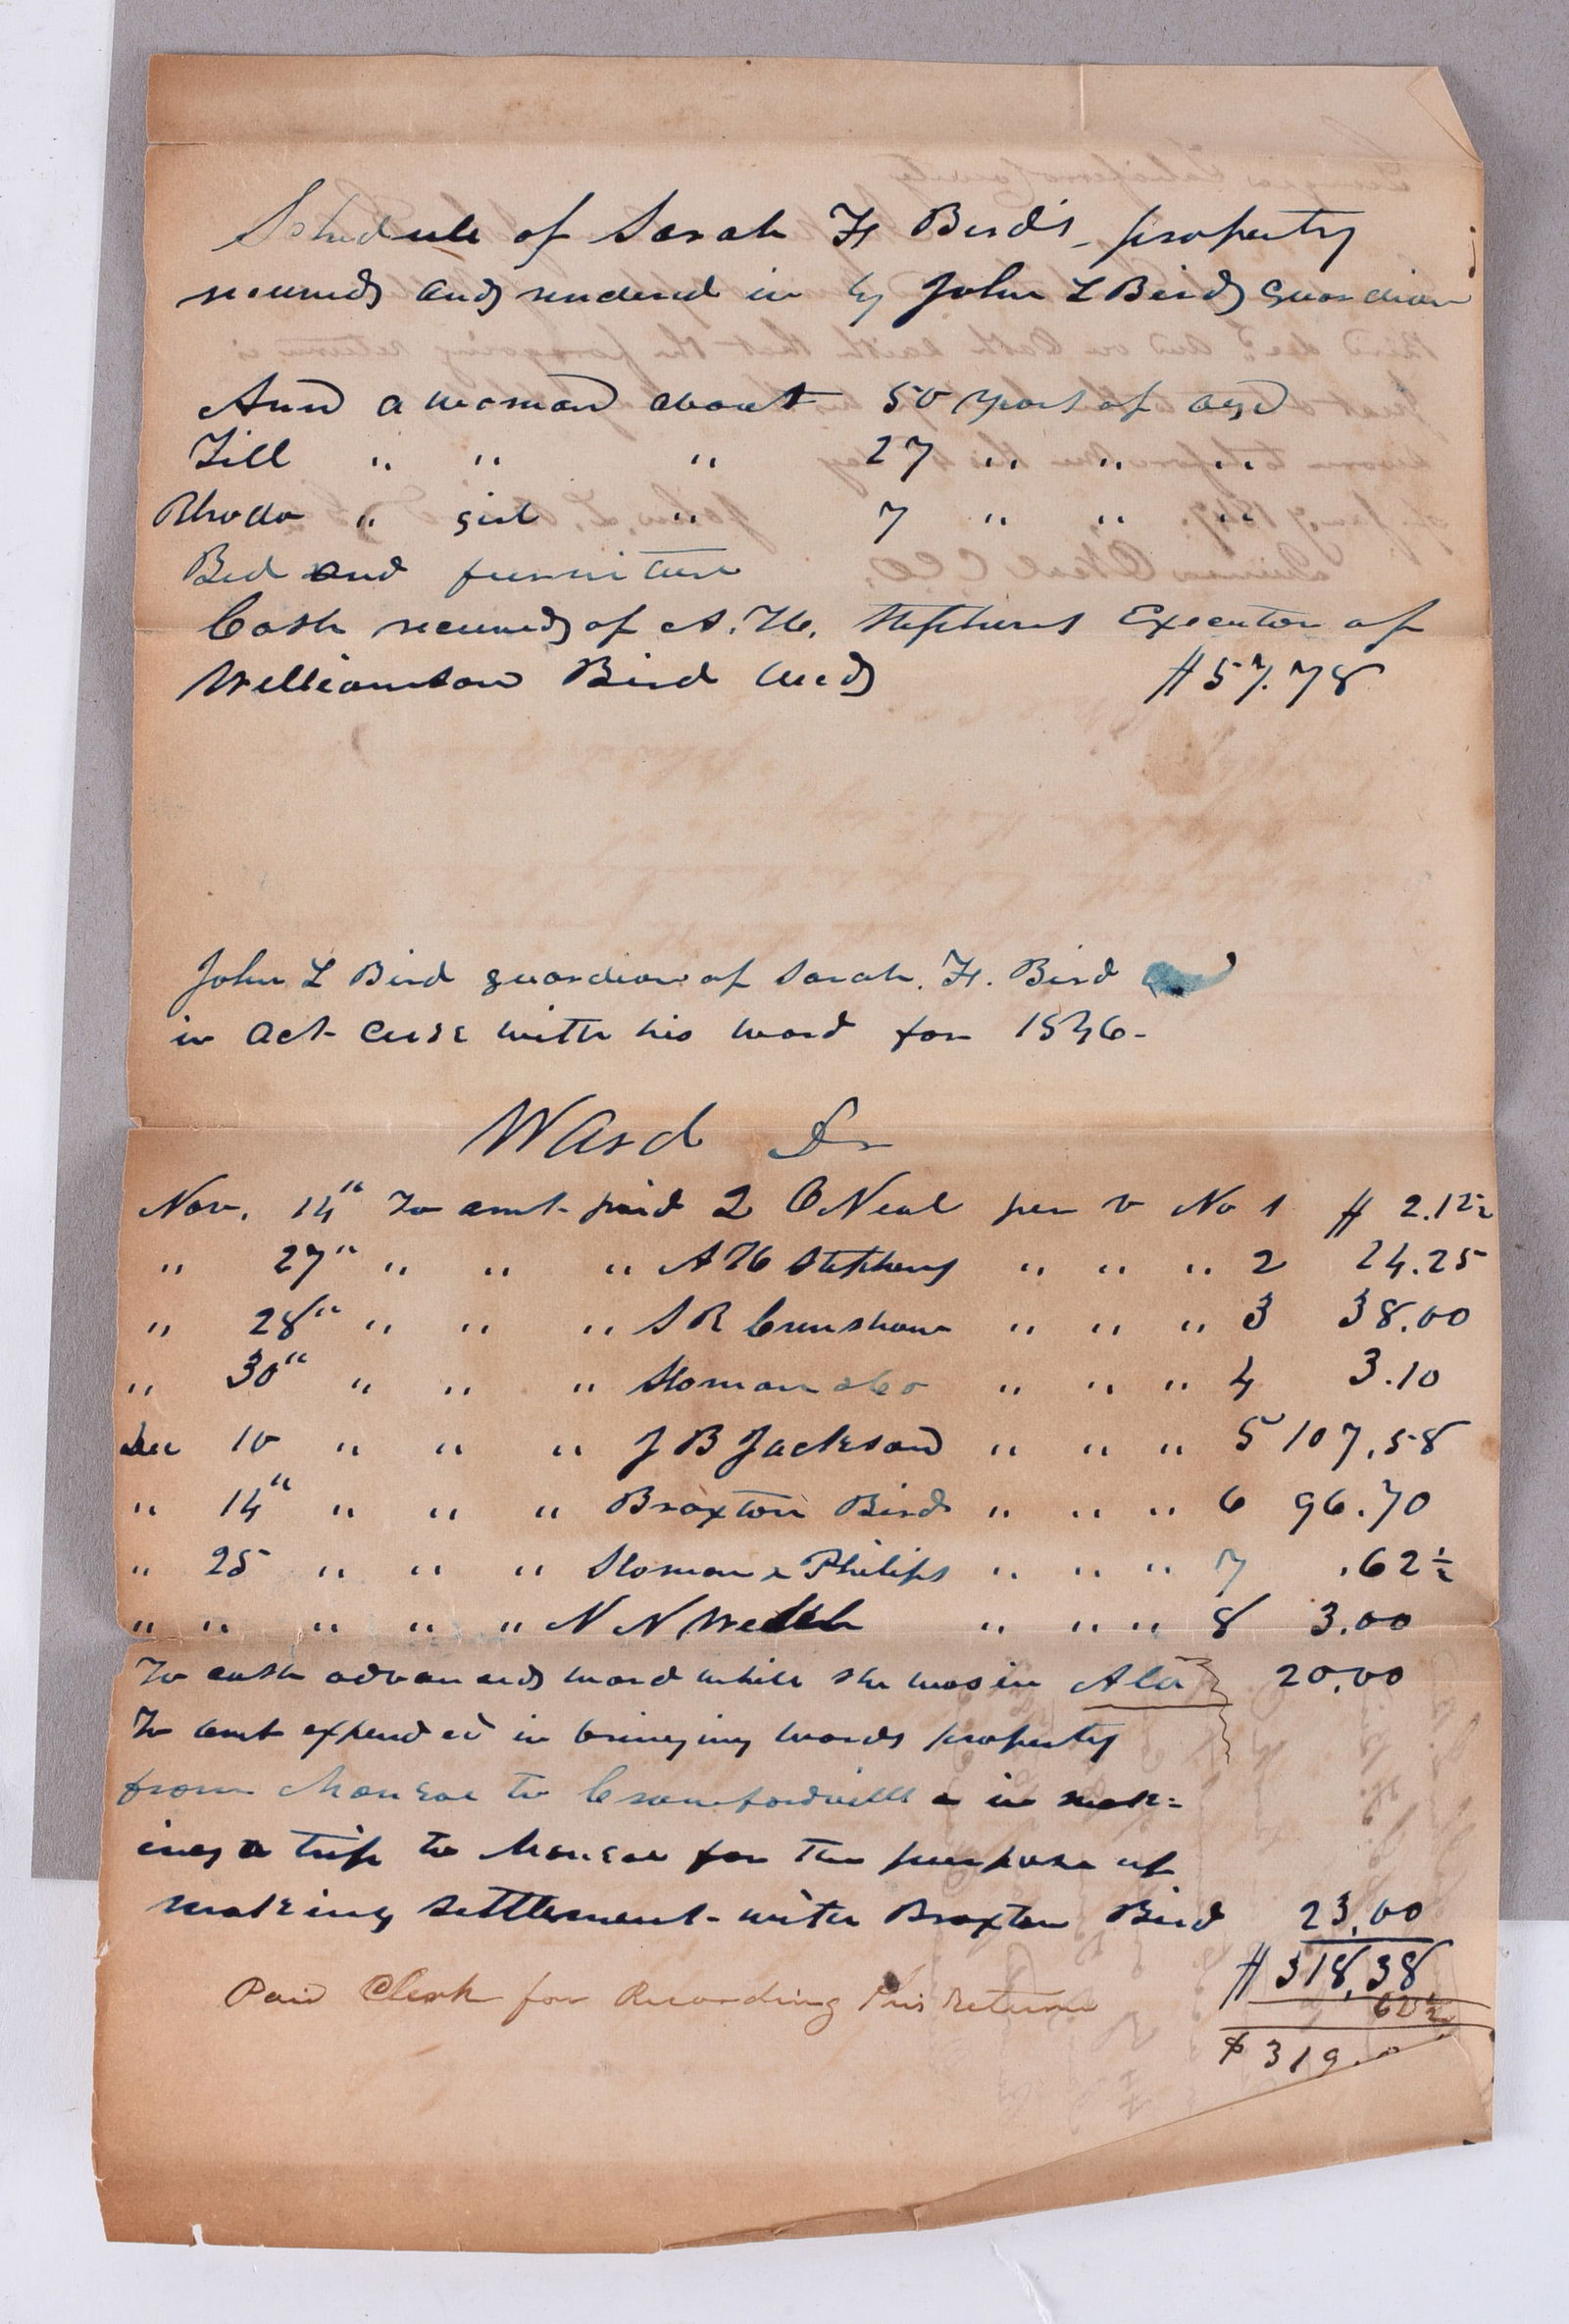 Schedule of Sarah F Bird's property
received and rendered in by John L Bird guardian
Ann a woman about 50 years of age
Till " " " 27 " " "
Rhoda " girl " 7 " " "
Bed and furniture
Cash received of A. H. Stephens Executor of
Williamson Bird decd $57.78
John L Bird guardian of Sarah. F. Bird
in act with his ward for 1846-
Ward Dr
Nov. 14" To amt paid Q O Neal per v No 1 $ 2.12½
" 27" " " " A H Stephens " " " 2 24.25
" 28" " " " S R Crenshaw " " " 3 38.00
" 30" " " " & Co " " " 4 3.10
Dec 10 " " " J B Jackson " " " 5 107.58
" 14" " " " Braxton Bird " " " 6 96.70
" 25 " " " & Philips " " " 7 .62½
" " " " " N N " " " 8 3.00
To cash advanced ward while she was in Ala 20.00
To amt expended in bringing wards property
from Monroe to Crawfordville & in mak=
ing a trip to Monroe for the purpose of
making settlement with Braxton Bird 23.00
$318,38
Paid Clerk for Recording this return 62½
$319.0